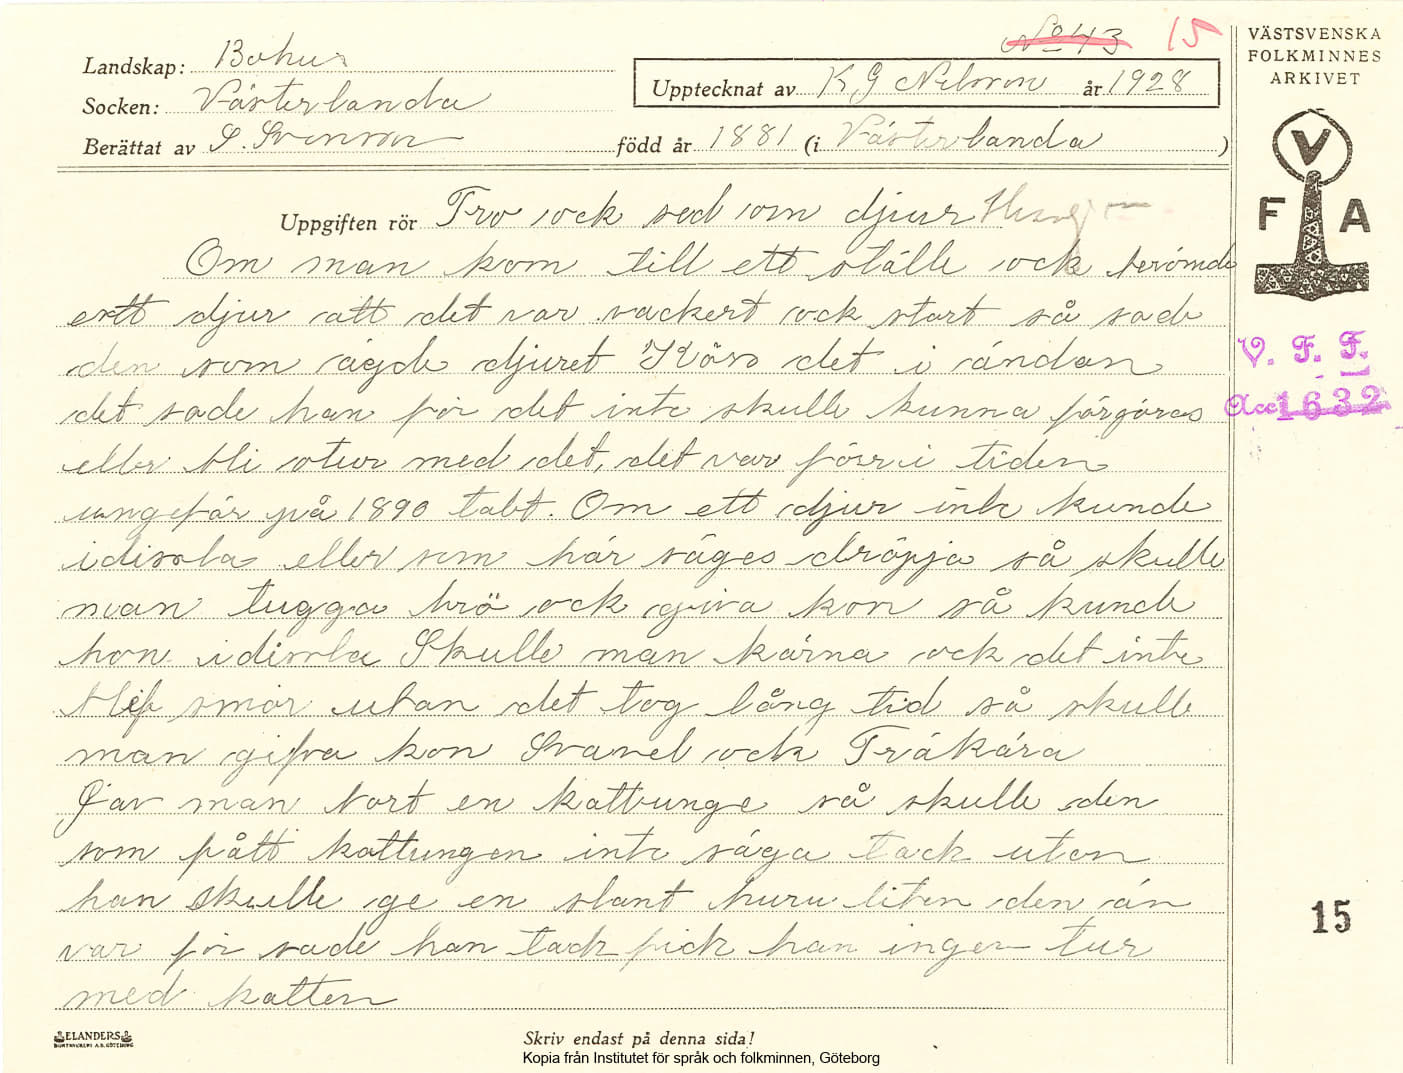 No 43 15
Landskap: Bohus
Socken: Västerlanda
Upptecknat av K G Nilsson år 1928
Berättat av S. Svenson född år 1881 (i Västerlanda )
Uppgiften rör Tro ock sed om djur
Om man kom till ett ställe ock berömde
ett djur att det var vackert ock stort så sade
den som ägde djuret Köss det i ändan
det sade han för det inte skulle kunna förgöras
eller bli otur med det, det var förr i tiden
ungefär på 1890 talet. Om ett djur inte kunde
idissla eller som här säges dröpja så skulle
man tugga brö ock giva kon så kunde
hon idissla Skulle man kärna ock det inte
blef smör utan det tog lång tid så skulle
man gifva kon Svavel ock Träkära
Gav man bort en kattunge så skulle den
som fått kattungen inte säga tack utan
han skulle ge en slant huru liten den än
var för sade han tack fick han ingen tur
med katten
VÄSTSVENSKA
FOLKMINNES
ARKIVET
V
F A
V. F. F.
Acc 1632
15
ELANDERS
BOKTRYCKERI A.B. GÖTEBORG
Skriv endast på denna sida!
Kopia från Institutet för språk och folkminnen, Göteborg